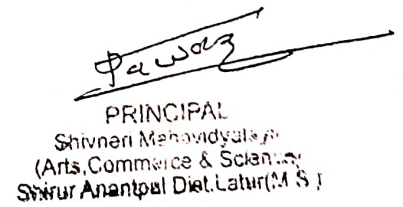 Pawar
PRINCIPAL
Shivneri Mahavidyalaya
(Arts, Commerce & Science)
Shirur Anantpal Dist. Latur (M.S.)